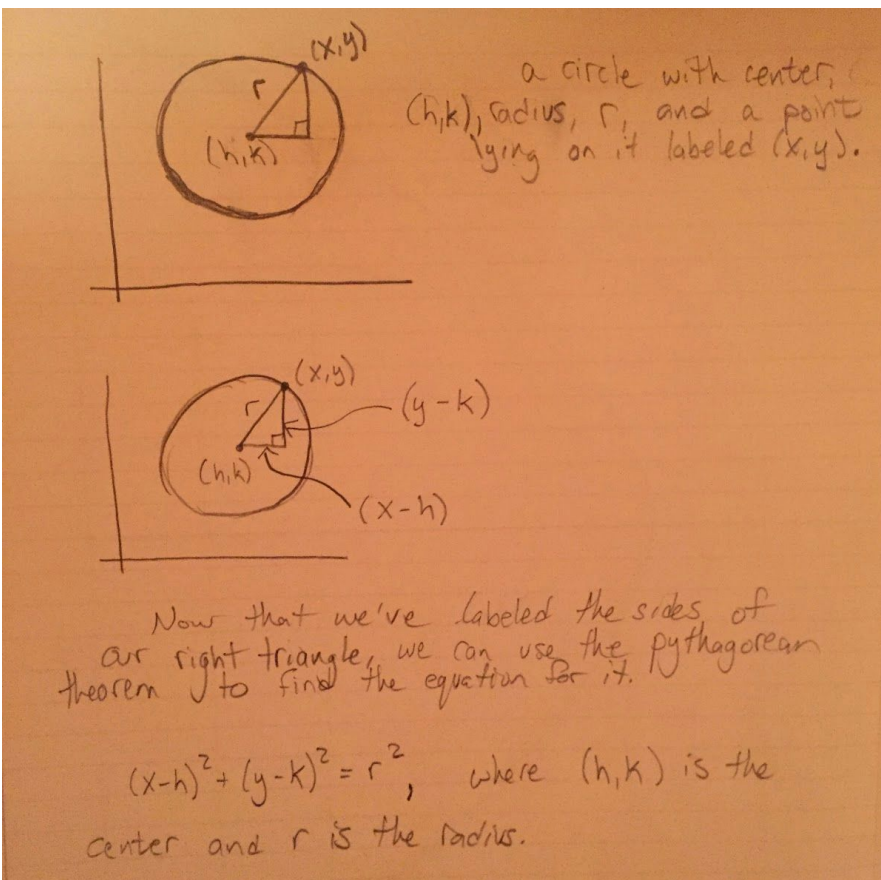 (x,y)
r
(h,k)
a circle with center,
(h,k), radius, r, and a point
lying on it labeled (x,y).
(x,y)
r
(y-k)
(h,k)
(x-h)
Now that we've labeled the sides of
our right triangle, we can use the pythagorean
theorem to find the equation for it.
(x-h)² + (y-k)² = r², where (h,k) is the
center and r is the radius.